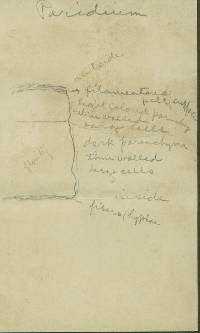 Peridium
outside
filamentous
pelt surface
light colored parenchy
thin walled
large cells
dark parenchyma
thin walled
large cells
inside
fibers/hyphae